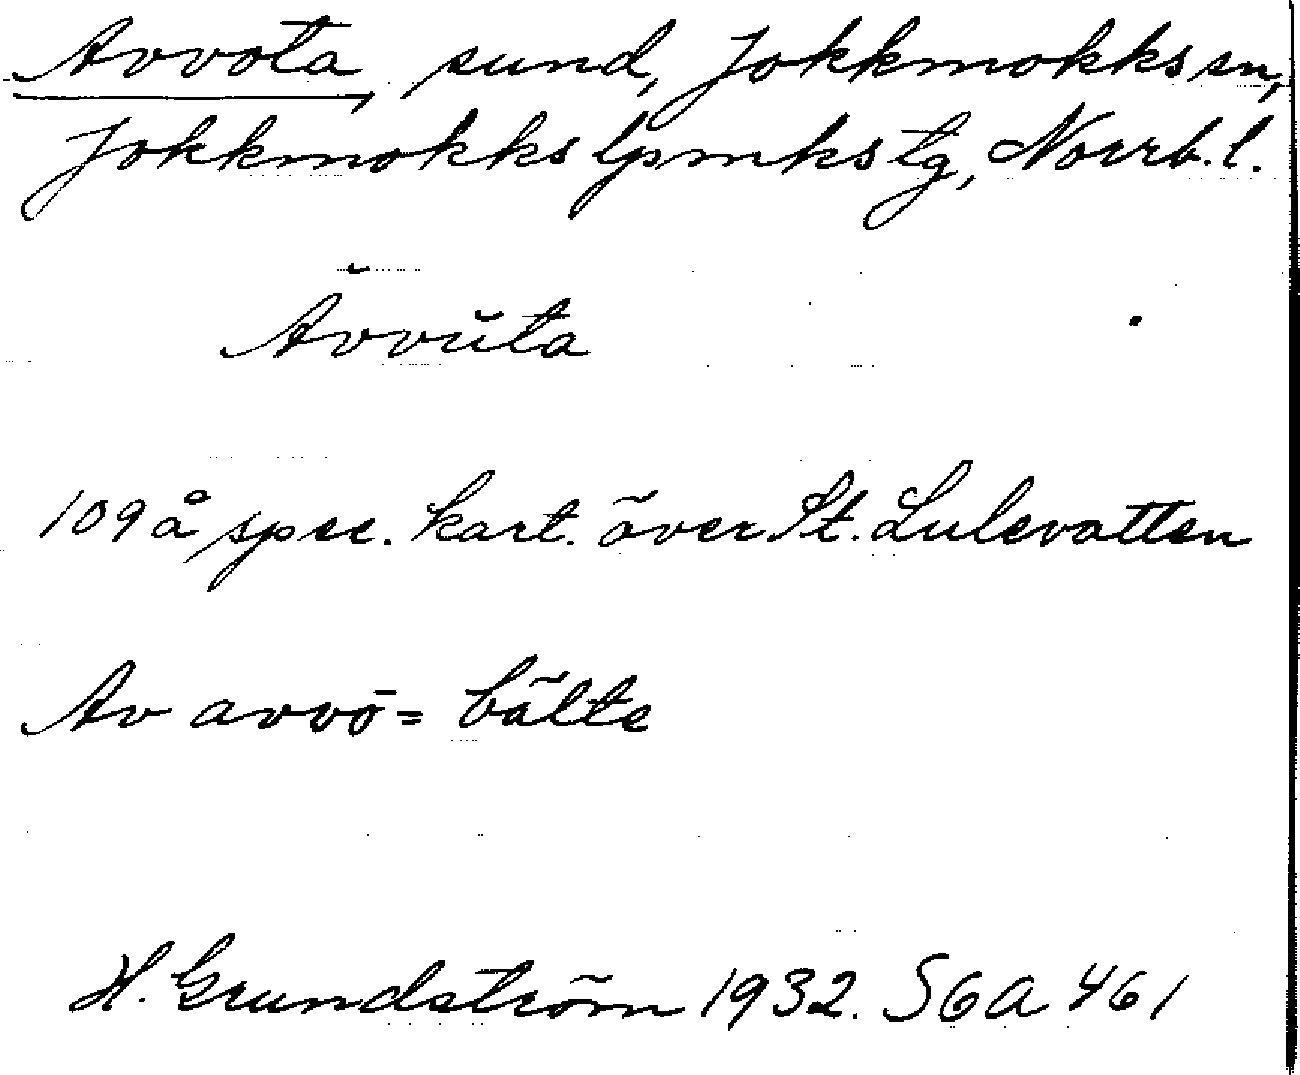 Avvota, sund, Jokkmokks sn,
Jokkmokks lpmks tg, Norrb. l.
Ăvvŭta
109 å spec. kart. över St. Lulevatten
Av avvō = bälte
H. Grundström 1932. SGA 461